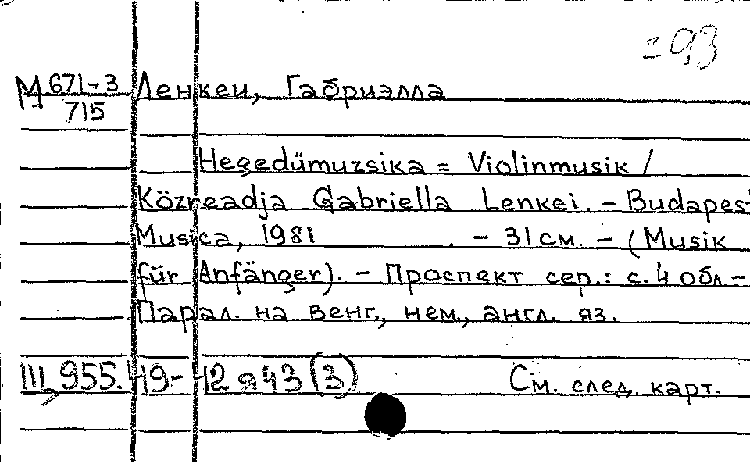 М 671-3 Ленкеи, Габриэлла
715
Hegedűmuzsika = Violinmusik /
Közreadja Gabriella Lenkei. – Budapest
Musica, 1981 – 31 см. – (Musik
für Anfänger). – Проспект сер.: с. 4 обл –
Парал. на венг., нем., англ. яз.
III 955. Н9– Н2 я43 (3) См. след. карт.